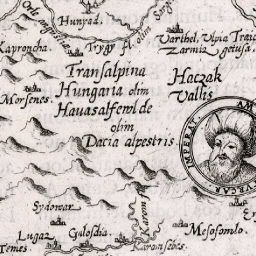 Hunyad.
Orle angustiæ
Sar
Kaproncha.
Trayg fl. olim
Varthel, Vlpia Trai
Zarmiz getusa
Transalpina
Hungaria olim
Hauasalfewl de
olim
Dacia alpestris.
Haczak
Vallis
Morsenes.
IMPERAT.
AM
TVRCAR
Sydowar
Karan
Lugaz
Galosdia.
Temes.
Karansebes.
Mesosomlo.